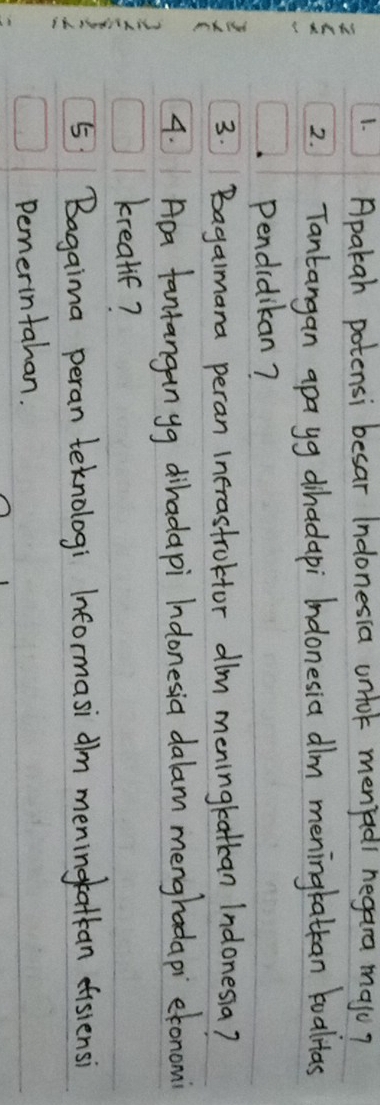 1. Apakah potensi besar Indonesia untuk menjadi negara maju?
2. Tantangan apa yg dihadapi Indonesia dlm meningkatkan kualitas
pendidikan?
3. Bagaimana peran Infrastruktur dlm meningkatkan Indonesia?
4. Apa tantangan yg dihadapi Indonesia dalam menghadapi ekonomi
kreatif?
5. Bagaima peran teknologi Informasi dlm meningkatkan efisiensi
Pemerintahan.